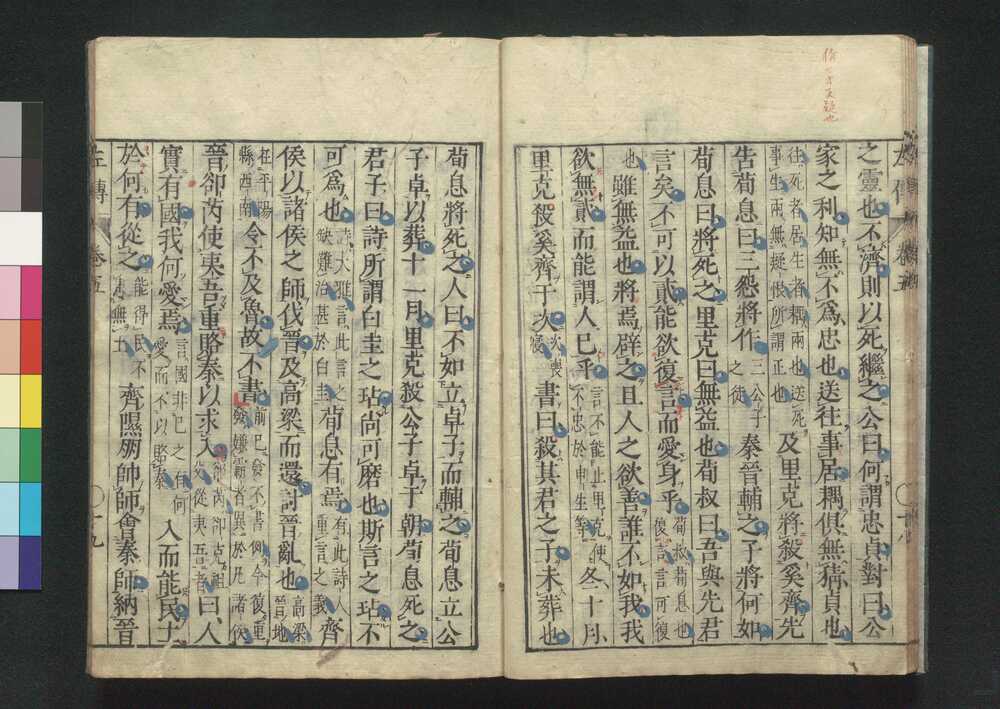 之靈也不濟則以死繼之公曰何謂忠貞對曰公
家之利知無不爲忠也送往事居耦俱無猜貞也
往死者居生者耦兩也送死事生兩無疑恨所謂正也及里克將殺奚齊先
告荀息曰三怨將作三公子之徒秦晉輔之子將何如
荀息曰將死之里克曰無益也荀叔曰吾與先君
言矣不可以貳能欲復言而愛身乎荀叔荀息也復言言可復
也雖無益也將焉辟之且人之欲善誰不如我我
欲無貳而能謂人已乎言不能止里克使不忠於申生等冬十月
里克殺奚齊于次次喪寢書曰殺其君之子未葬也
荀息將死之人曰不如立卓子而輔之荀息立公
子卓以葬十一月里克殺公子卓于朝荀息死之
君子曰詩所謂白圭之玷尚可磨也斯言之玷不
可爲也詩大雅言此言之缺難治甚於白圭荀息有焉有此詩人重言之義齊
侯以諸侯之師伐晉及高梁而還討晉亂也高梁晉地
在平陽縣西南令不及魯故不書前已發不書例今復重發嫌霸者異於凡諸侯
晉郤芮使夷吾重賂秦以求入郤芮郤克祖父從夷吾者曰人
實有國我何愛焉言國非己之有何愛而不以賂秦入而能民土
於何有從之能得民不患無土齊隰朋帥師會秦師納晉
左傳 卷五 十九